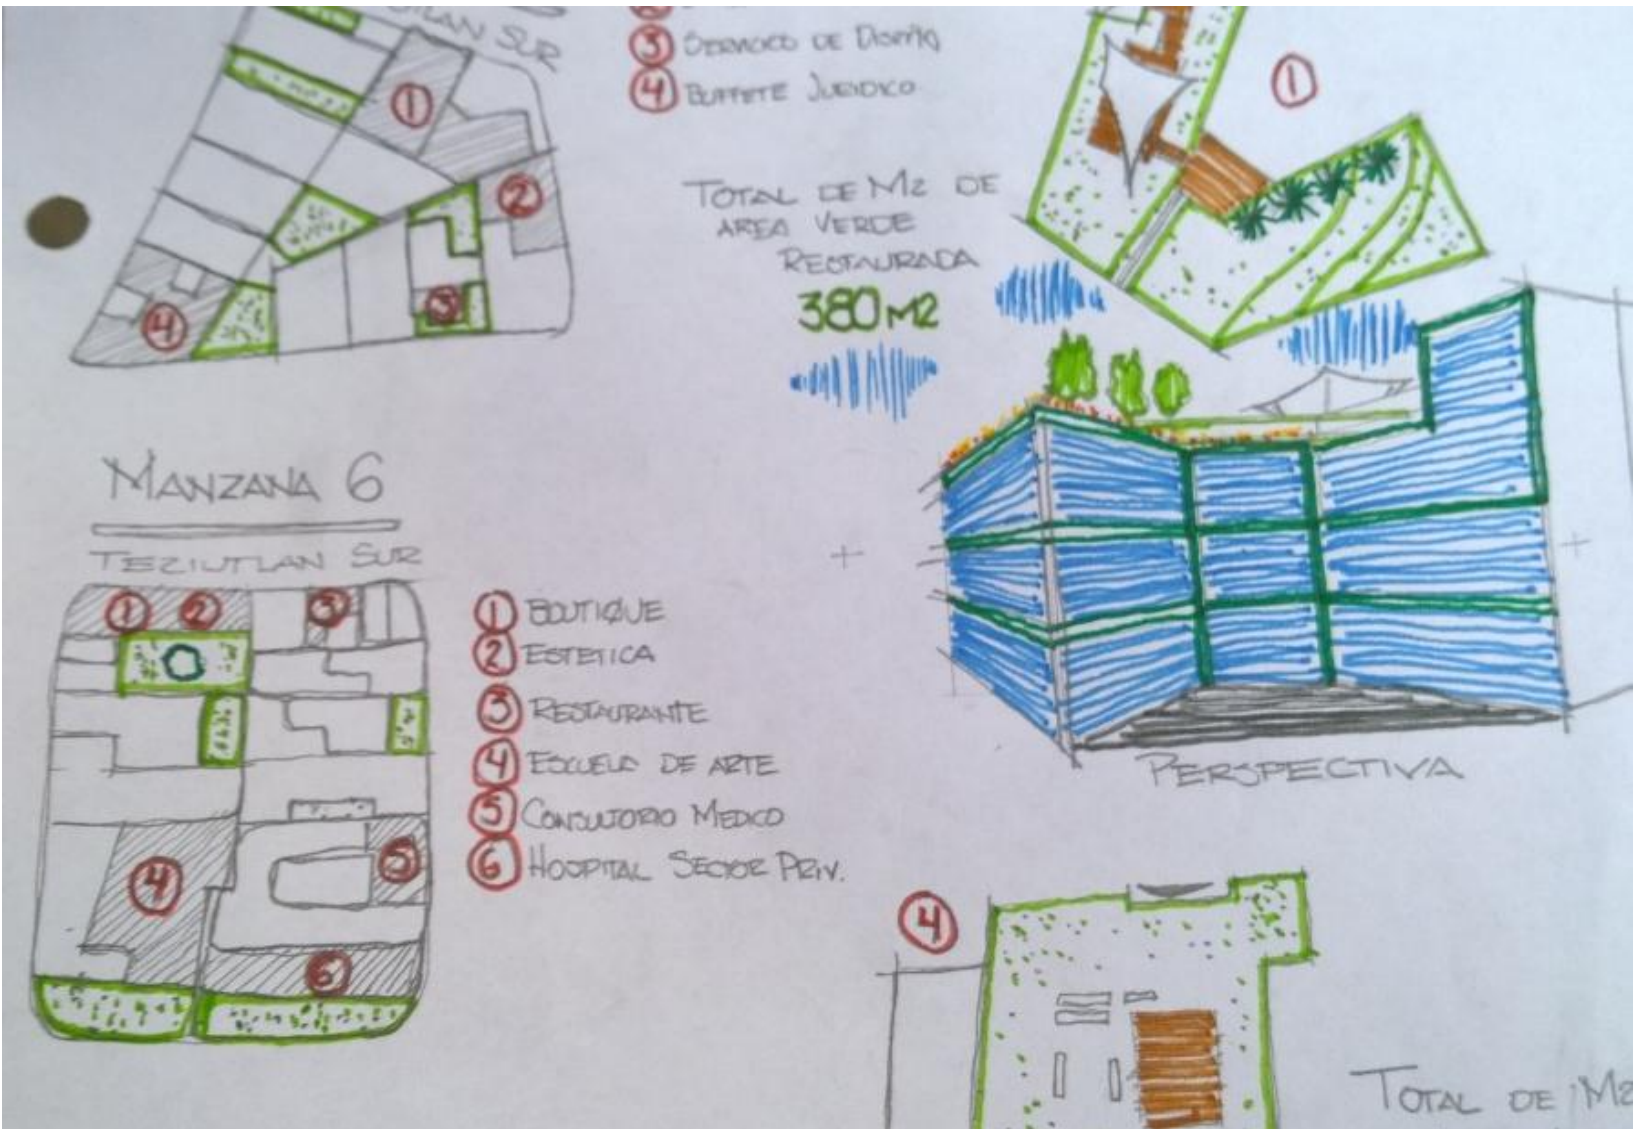 SUR
3 SERVICIO DE DISEÑO
4 BUFFETE JURIDICO
1
2
3
4
1
TOTAL DE M2 DE
AREA VERDE
RESTAURADA
380 M2
MANZANA 6
TEZIUTLAN SUR
1
2
3
4
5
6
1 BOUTIQUE
2 ESTETICA
3 RESTAURANTE
4 ESCUELA DE ARTE
5 CONSULTORIO MEDICO
6 HOSPITAL SECTOR PRIV.
PERSPECTIVA
4
TOTAL DE M2